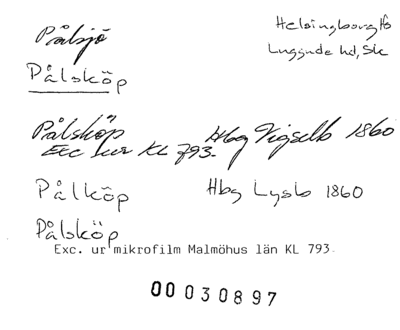 Pålsjö
Helsingborg lfs
Luggude hd, Sk
Pålsköp
Pålsköp Hbg Vigselb 1860
Exc. ur KL 793.
Pålköp Hbg Lysb 1860
Pålsköp
Exc. ur mikrofilm Malmöhus län KL 793.
00 030897